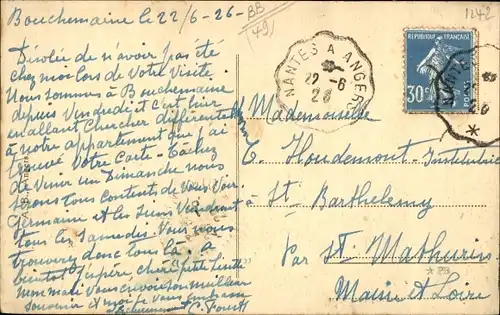 Bouchemaine le 22/6-26-
BB
49)
1242
Désolée de n'avoir pas été
chez moi lors de votre visite.
Nous sommes à Bouchemaine
depuis Vendredi et c'est hier
en allant chercher différentes
à notre appartement que j'ai
trouvé votre Carte - Tâchez
de venir un Dimanche nous
serons tous contents de vous voir.
Germaine et les siens viendront
tous les samedis. Vous nous
trouverez donc tous là. A
bientôt j'espère chère petite
Mémé vous envoie son meilleur
souvenir et moi je vous embrasse
affectueusement
NANTES A ANGERS
22-6
26
REPUBLIQUE FRANÇAISE
30c
POSTES
NANTES
26
Mademoiselle
T. Houdemont - Institutrice
à St. Barthélemy
par St. Mathurin
Maine et Loire